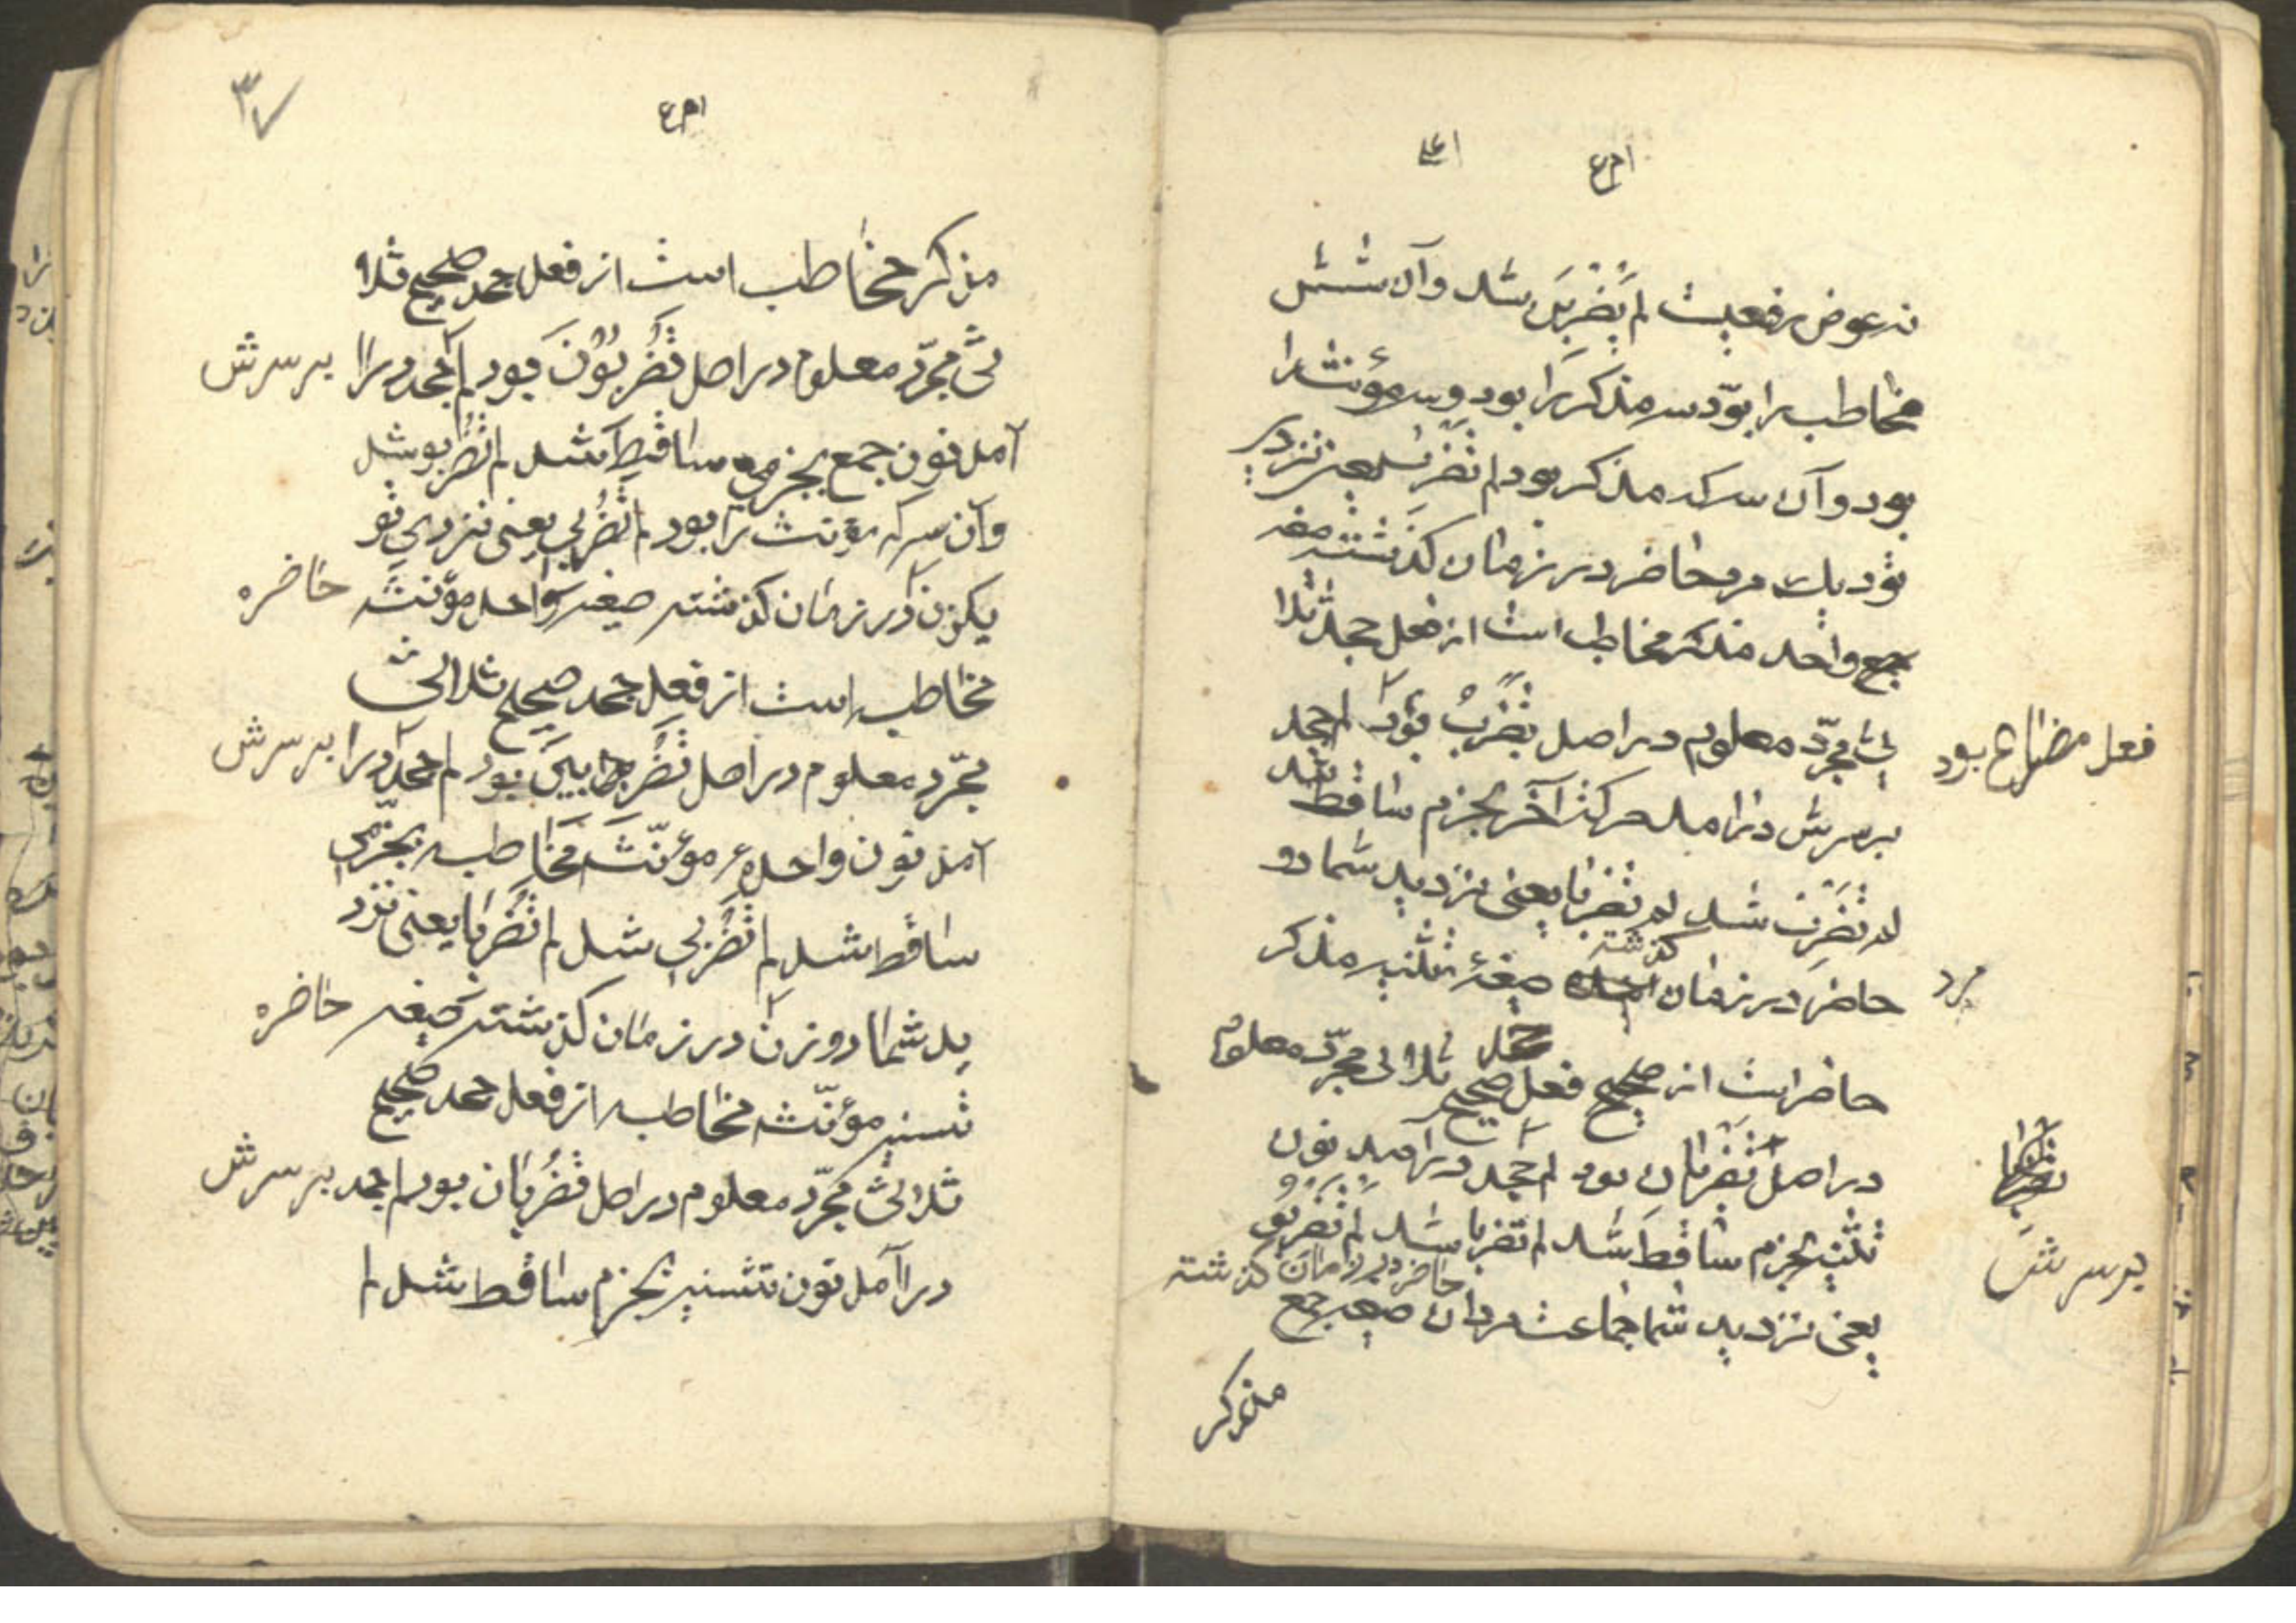 نه عوض رفعیت لم یضربن شد وآن شش
مخاطب را بود سه مذکر را بود وسه مؤنث را
بود وآن سه که مذکر بود لم تضرب یعنی نزدی
تو یک مرد حاضر در زمان کذشته صیغه
واحد مذکر مخاطب است از فعل جحد ثلا
ثی مجرّد معلوم در اصل تضربُ بود لم جحد
فعل مضارع بود
برسرش درامد حرکت آخر بجزم ساقط شد
لم تضرب شد لم تضربا یعنی نزدید شما دو
مرد
حاضر در زمان کذشته صیغهٔ تثنیه مذکر
حاضر است از صحیح فعل جحد صحیح ثلاثی مجرّد معلوم
در اصل تضربان بود لم جحد درآمد نون
برسرش
تثنیه بجزم ساقط شد لم تضربا شد لم تضربو
یعنی نزدید شما جماعت مردان حاضر در زمان کذشته صیغه جمع
مذکر
۳۷
مذکر مخاطب است از فعل جحد صحیح ثلا
ثی مجرّد معلوم در اصل تَضْرِبُوْنَ بود لم جحد درا برسرش
آمد نون جمع بجزمی ساقط شد لم تضربو شد
وآن سه که مؤنث را بود لم تضربی یعنی نزدی تو
یکزن در زمان کذشته صیغه واحد مؤنثه حاضره
مخاطبه است از فعل جحد صحیح ثلاثی
مجرّد معلوم در اصل تضربین بود لم جحد درا برسرش
آمد نون واحدهٔ مؤنّثه مخاطبه بجزمی
ساقط شد لم تضربی شد لم تضربا یعنی نزد
ید شما دو زن در زمان کذشته صیغه حاضره
تسنیه مؤنّثه مخاطبه از فعل جحد صحیح
ثلاثی مجرّد معلوم در اصل تضربان بود لم جحد برسرش
درآمد نون تثسنیه بجزم ساقط شد لم